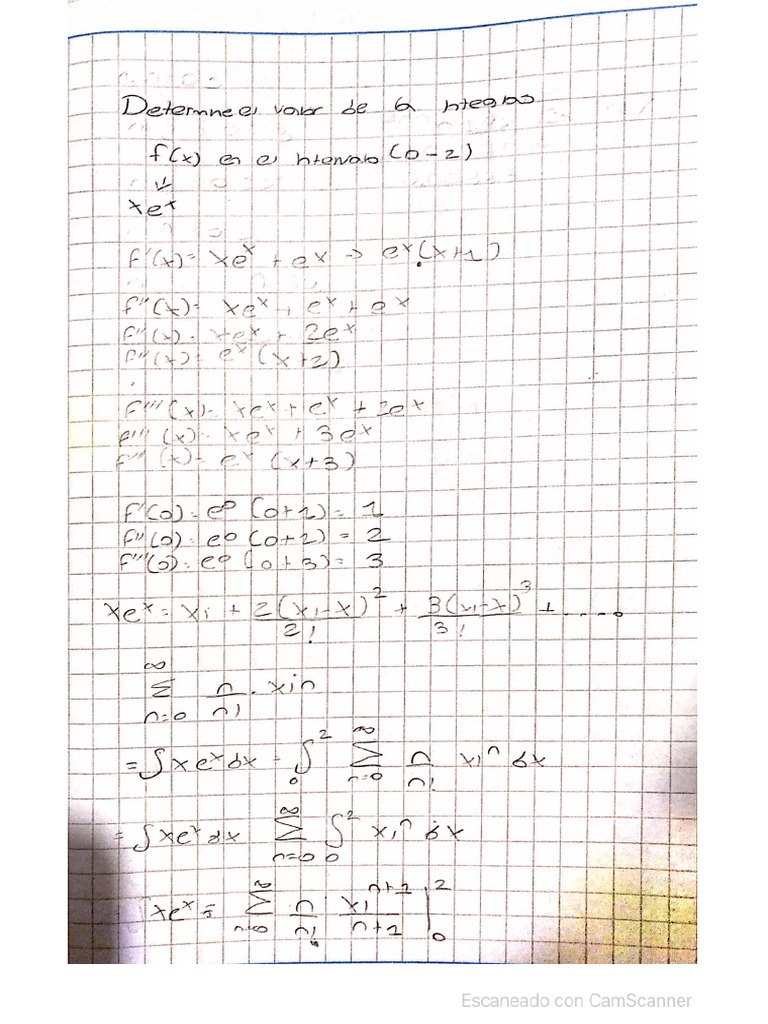 Determine el valor de la integral
f(x) en el intervalo (0-2)
↓
xeˣ
f'(x)= xeˣ + eˣ → eˣ(x+1)
f''(x)= xeˣ + eˣ + eˣ
f''(x)= xeˣ + 2eˣ
f''(x)= eˣ (x+2)
f'''(x)= xeˣ + eˣ + 2eˣ
f'''(x)= xeˣ + 3eˣ
f'''(x)= eˣ (x+3)
f'(0)= e⁰ (0+1)= 1
f''(0)= e⁰ (0+2)= 2
f'''(0)= e⁰ (0+3)= 3
xeˣ = xi + 2(xi-x)²/2! + 3(xi-x)³/3! + .....
∞ Σ n=0 n/n! · xiⁿ
= ∫xeˣdx = ∫₀² ∞ Σ n=0 n/n! xiⁿ dx
= ∫xeˣdx ∞ Σ n=0 ∫₀² xiⁿ dx
∫xeˣ = ∞ Σ n=0 n/n! xiⁿ⁺¹/n+1 |₀²
Escaneado con CamScanner